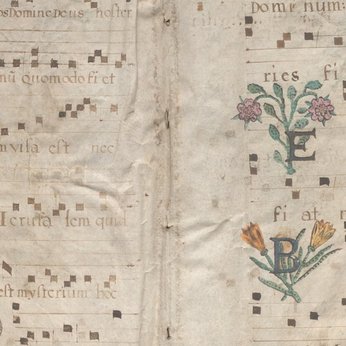 os Domine Deus noster
nū quomodo fi et
m vi sa est nec
Ierusa lem quia
est mysterium hoc
Domi num
ries fi
E
fi at
B